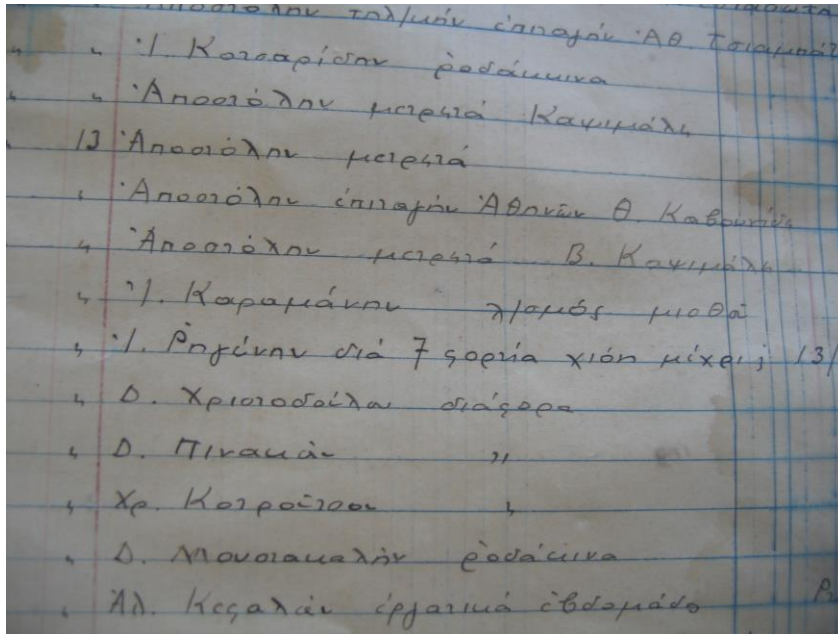 Ἀποστόλην τηλ/κήν ἐπιταγήν Ἀθ. Τσιαμπάζ
" " Ἰ. Κοτσαρίδην ῥοδάκινα
" " Ἀποστόλην μετρητά Καψιμάλη
13 Ἀποστόλην μετρητά
" Ἀποστόλην ἐπιταγήν Ἀθηνῶν Θ.
" Ἀποστόλην μετρητά Β. Καψιμάλη
" Ἰ. Καραμάνην λ/σμός μισθοῦ
" Ἰ. Ῥηγίνην διά 7 φορτία χιόνη μέχρι 13/
" Δ. Χριστοδούλου διάφορα
" Δ. Πινακάν "
" Χρ. Κοτρότσου "
" Δ. Μουστακαλήν ῥοδάκινα
" Ἀλ. Κεφαλάν ἐργατικά ἑβδομάδο